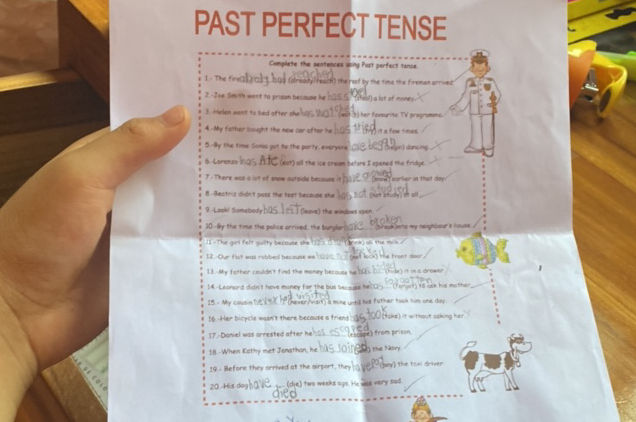 PAST PERFECT TENSE
Complete the sentences using Past perfect tense.
1.- The fire already had reached (already/reach) the roof by the time the fireman arrived.
2.-Joe Smith went to prison because he has (steal) a lot of money.
3.-Helen went to bed after she has watched (watch) her favourite TV programme.
4.-My father bought the new car after he has tried (try) it a few times.
5.-By the time Sonia got to the party, everyone have began (begin) dancing.
6.-Lorenzo has Ate (eat) all the ice cream before I opened the fridge.
7.-There was a lot of snow outside because it have snowed (snow) earlier in that day.
8.-Beatriz didn't pass the test because she has not studied (not study) at all.
9.-Look! Somebody has left (leave) the windows open.
10.-By the time the police arrived, the burglar have broken (break) into my neighbour's house.
11.-The girl felt guilty because she has (drink) all the milk.
12.-Our flat was robbed because we have not locked (not lock) the front door.
13.-My father couldn't find the money because he has (hide) it in a drawer.
14.-Leonard didn't have money for the bus because he has forgotten (forget) to ask his mother.
15.- My cousin never had visited (never/visit) a mine until his father took him one day.
16.-Her bicycle wasn't there because a friend has took (take) it without asking her.
17.-Daniel was arrested after he has escaped (escape) from prison.
18.-When Kathy met Jonathan, he has joined (join) the Navy.
19.- Before they arrived at the airport, they have (pay) the taxi driver.
20.-His dog have died (die) two weeks ago. He was very sad.